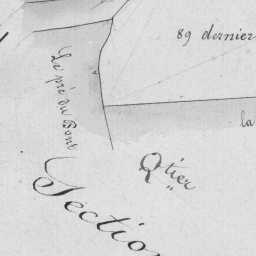 89 dernier
Le pré du Bout
la
Qtier
Section